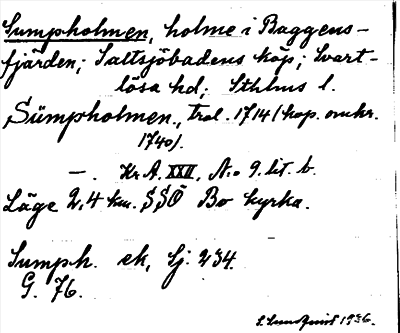 Sumpholmen, holme i Baggens-
fjärden; Saltsjöbadens köp; Svart-
lösa hd; Sthlms l.
Sümpholmen, trol. 1714 (kop. omkr.
1740).
—. Kr A. XXII, N:o 9. lit. b.
Läge 2,4 km. SSÖ Bo kyrka.
Sumph. ek, Sj. 234.
G. 76.
S. Lundquist 1936.